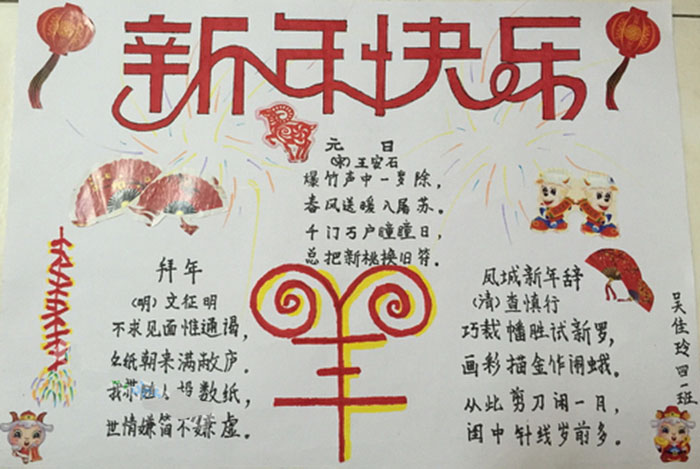 新年快乐
元 日
(宋)王安石
爆竹声中一岁除,
春风送暖入屠苏。
千门万户瞳瞳日,
总把新桃换旧符。
拜年
(明)文征明
不求见面惟通谒,
名纸朝来满敝庐。
我随人数纸,
世情嫌简不嫌虚。
羊
凤城新年辞
(清)查慎行
巧裁幡胜试新罗,
画彩描金作闹蛾。
从此剪刀闲一月,
闺中针线岁前多。
吴佳玲 四一班